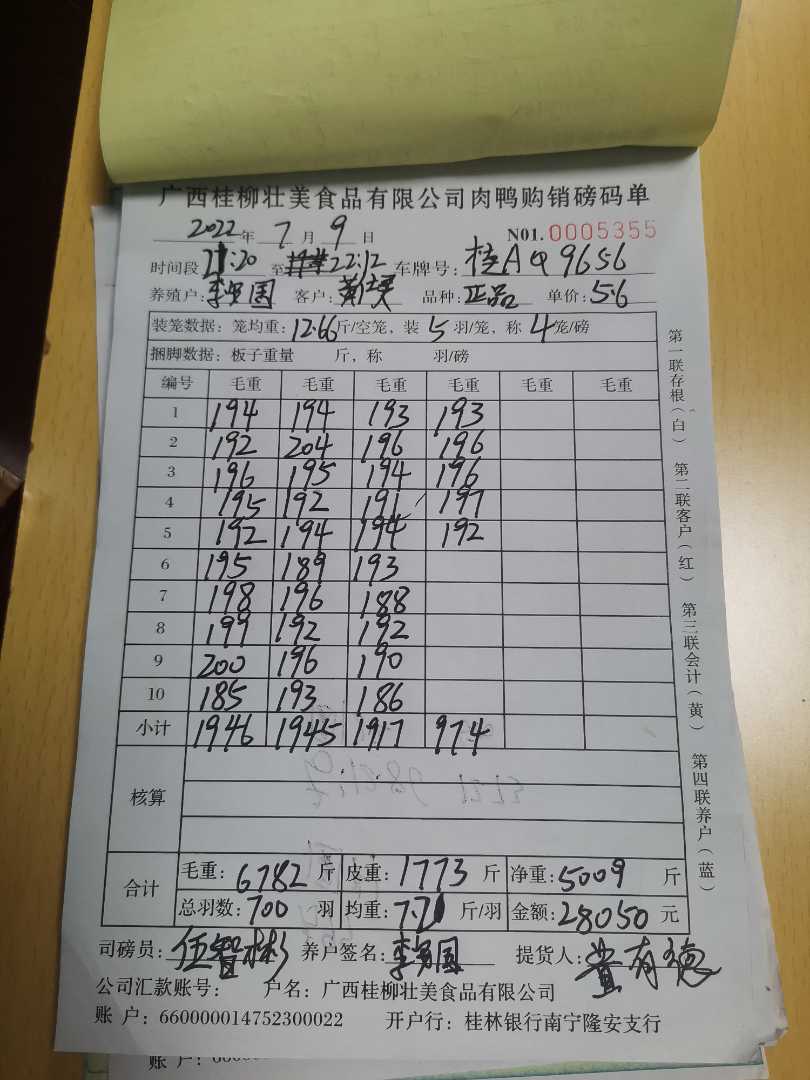 广西桂柳壮美食品有限公司肉鸭购销磅码单
2022年 7月 9日 N01. 0005355
时间段 21:20 至 22:12 车牌号: 桂AQ9656
养殖户: 李 国 客户: 黄 品种: 正品 单价: 5.6
装笼数据: 笼均重: 12.66斤/空笼, 装 5 羽/笼, 称 4笼/磅
捆脚数据: 板子重量 斤, 称 羽/磅
编号 毛重 毛重 毛重 毛重 毛重 毛重
1 194 194 193 193
2 192 204 196 196
3 196 195 194 196
4 195 192 191 197
5 192 194 194 192
6 195 189 193
7 198 196 188
8 199 192 192
9 200 196 190
10 185 193 186
小计 1946 1945 1917 974
核算
合计 毛重: 6782 斤 皮重: 1773 斤 净重: 5009 斤
总羽数: 700 羽 均重: 7.21 斤/羽 金额: 28050 元
司磅员: 伍智彬 养户签名: 李 国 提货人: 黄有德
公司汇款账号: 户名: 广西桂柳壮美食品有限公司
账 户: 660000014752300022 开户行: 桂林银行南宁隆安支行
第一联存根(白) 第二联客户(红) 第三联会计(黄) 第四联养户(蓝)
账 户: